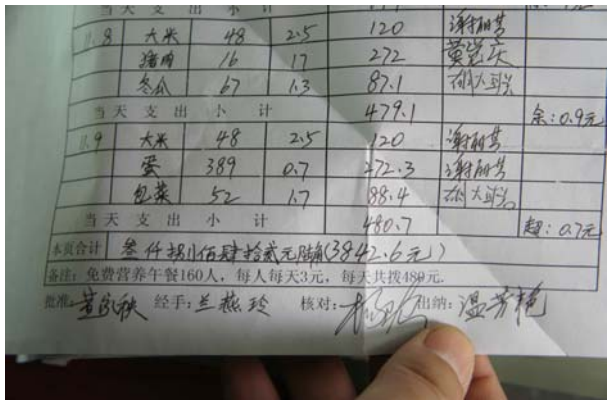 当天支出小计
11.8 大米 48 2.5 120
猪肉 16 17 272
冬瓜 67 1.3 87.1
当天支出小计 479.1 余:0.9元
11.9 大米 48 2.5 120
蛋 389 0.7 272.3
包菜 52 1.7 88.4
当天支出小计 480.7 超:0.7元
本页合计 叁仟捌佰肆拾贰元陆角(3842.6元)
备注:免费营养午餐160人,每人每天3元,每天共拨480元.
批准: 经手:兰燕玲 核对: 出纳:温芳艳